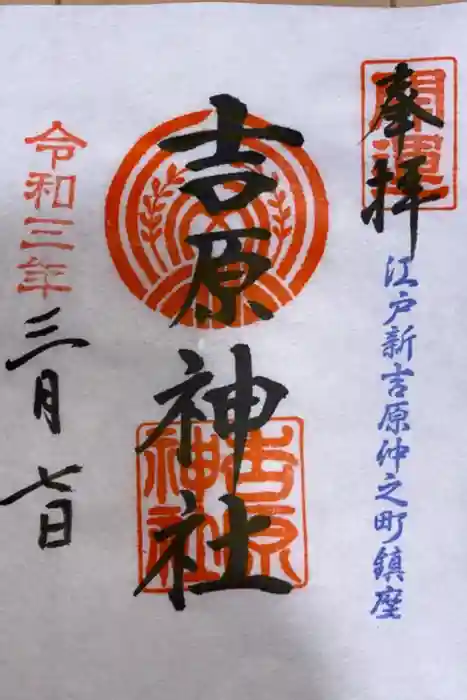 奉拝
開運
江戸新吉原仲之町鎮座
吉原神社
吉原
神社
令和三年三月七日